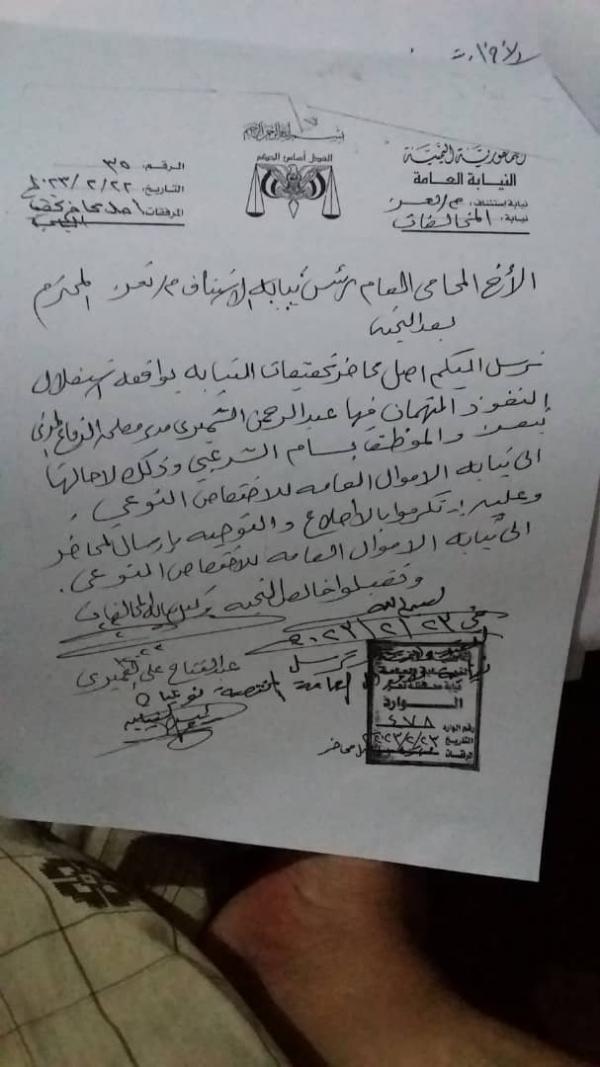 بسم الله الرحمن الرحيم
العدل أساس الحكم
جمهورية اليمنية
النيابة العامة
نيابة إستئناف: م/تعز
نيابة: المخالفات
الرقم: ٣٥
التاريخ: ٢٢/٢/٢٠٢٣م
المرفقات: اصل محاضر
الأخ المحامي العام رئيس نيابة الاستئناف م/تعز المحترم
بعد التحية
نرسل اليكم اصل محاضر تحقيقات النيابة بواقعة استغلال
النفوذ المتهمان فيها عبدالرحمن الشميري مدير مصلحة الدفاع المدني
بتعز والموظف بسام الشرعبي وذلك لاحالتها
الى نيابة الاموال العامه للاختصاص النوعي
وعليه: تكرموا بالاطلاع والتوجيه بإرسال المحاضر
الى نيابة الاموال العامه للاختصاص النوعي.
وتقبلوا خالص التحية
وكيل نيابة المخالفات
٢٣/٢/٢٠٢٣
عبدالفتاح علي
العامة المختصة نوعيا
الواردة
رقم الوارد ٤٧٨
التاريخ ٢٣/٢/٢٠٢٣
محاضر